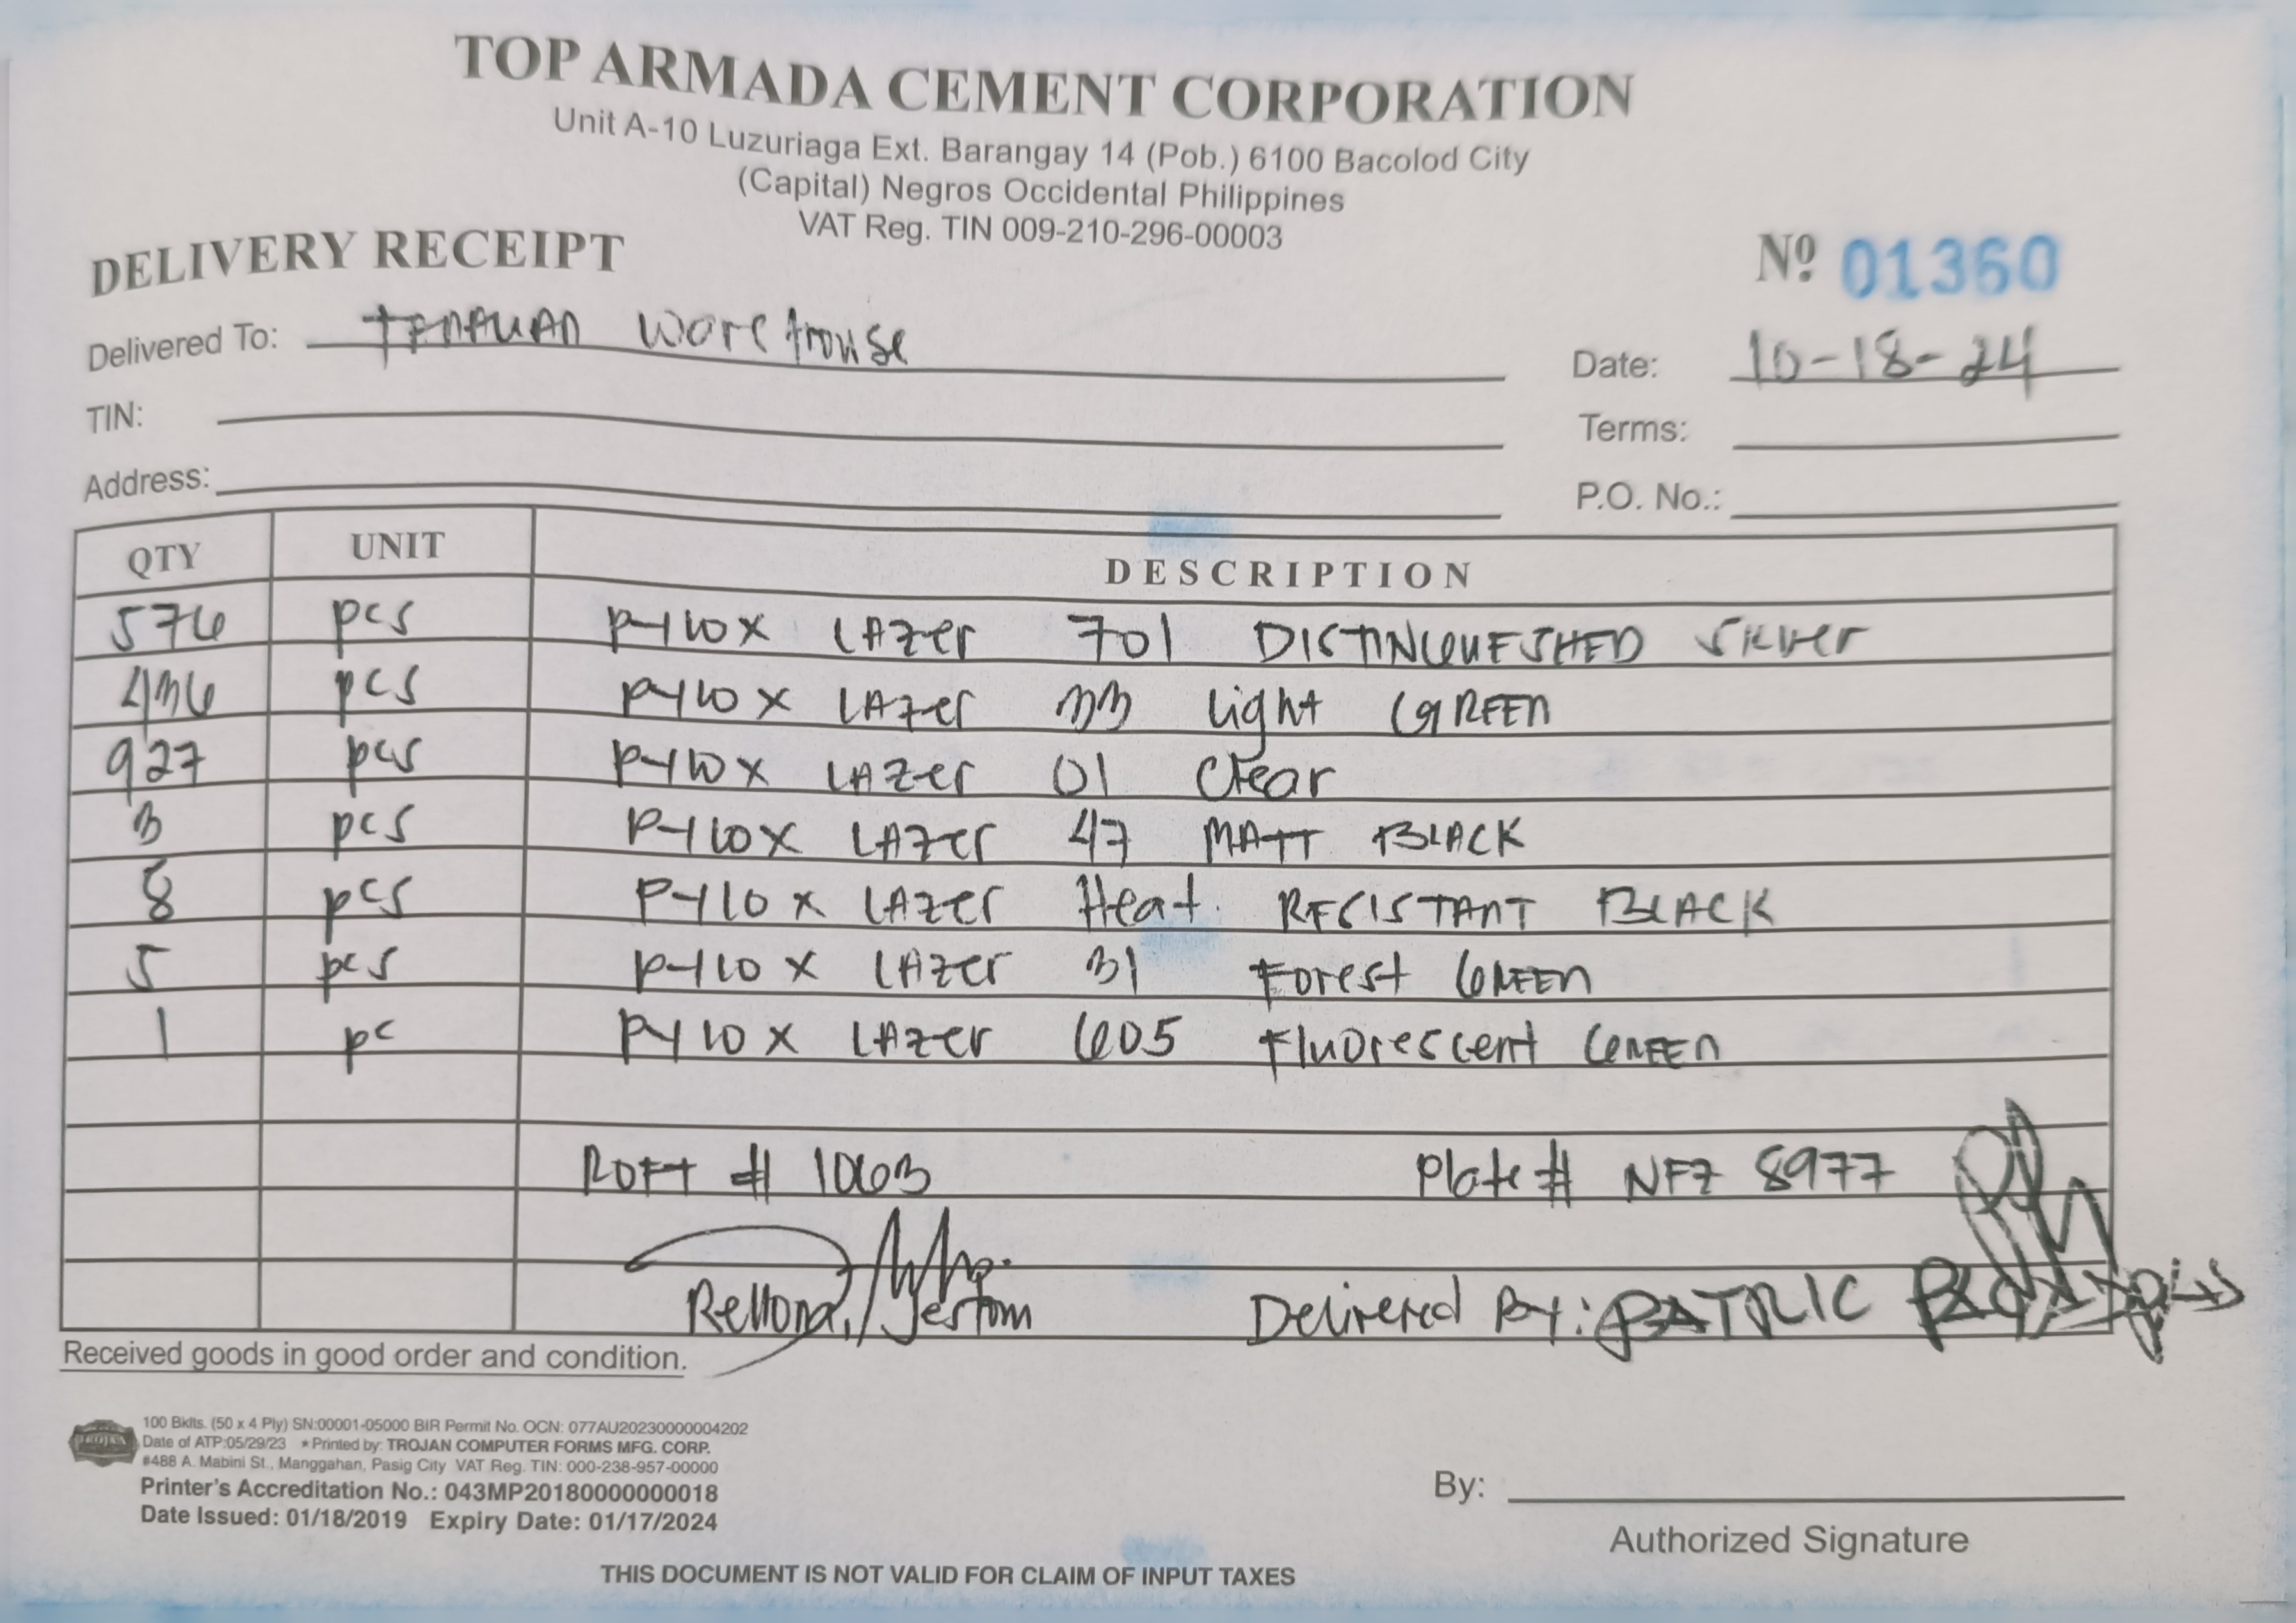 TOP ARMADA CEMENT CORPORATION
Unit A-10 Luzuriaga Ext. Barangay 14 (Pob.) 6100 Bacolod City
(Capital) Negros Occidental Philippines
VAT Reg. TIN 009-210-296-00003
DELIVERY RECEIPT
Nº 01360
Delivered To: TANAUAN WareHouse
Date: 10-18-24
TIN:
Terms:
Address:
P.O. No.:
QTY UNIT DESCRIPTION
576 pcs PYLOX LAZer 701 DISTINGUESHED SILVer
436 pcs PYLOX LAZer 33 Light GREEN
927 pcs PYLOX LAZer 01 Clear
3 pcs PYLOX LAZer 47 MATT BLACK
8 pcs PYLOX LAZer Heat RESISTANT BLACK
5 pcs PYLOX LAZer 31 Forest GREEN
1 pc PYLOX LAZer 605 Fluorescent GREEN
ROFT # 1063 Plate# NFZ 8977
Rellona, Jestom Delivered By: PATRIC
Received goods in good order and condition.
TROJAN
100 Bklts. (50 x 4 Ply) SN:00001-05000 BIR Permit No. OCN: 077AU20230000004202
Date of ATP:05/29/23 ★Printed by: TROJAN COMPUTER FORMS MFG. CORP.
#488 A. Mabini St., Manggahan, Pasig City VAT Reg. TIN: 000-238-957-00000
Printer's Accreditation No.: 043MP20180000000018
Date Issued: 01/18/2019 Expiry Date: 01/17/2024
By:
Authorized Signature
THIS DOCUMENT IS NOT VALID FOR CLAIM OF INPUT TAXES